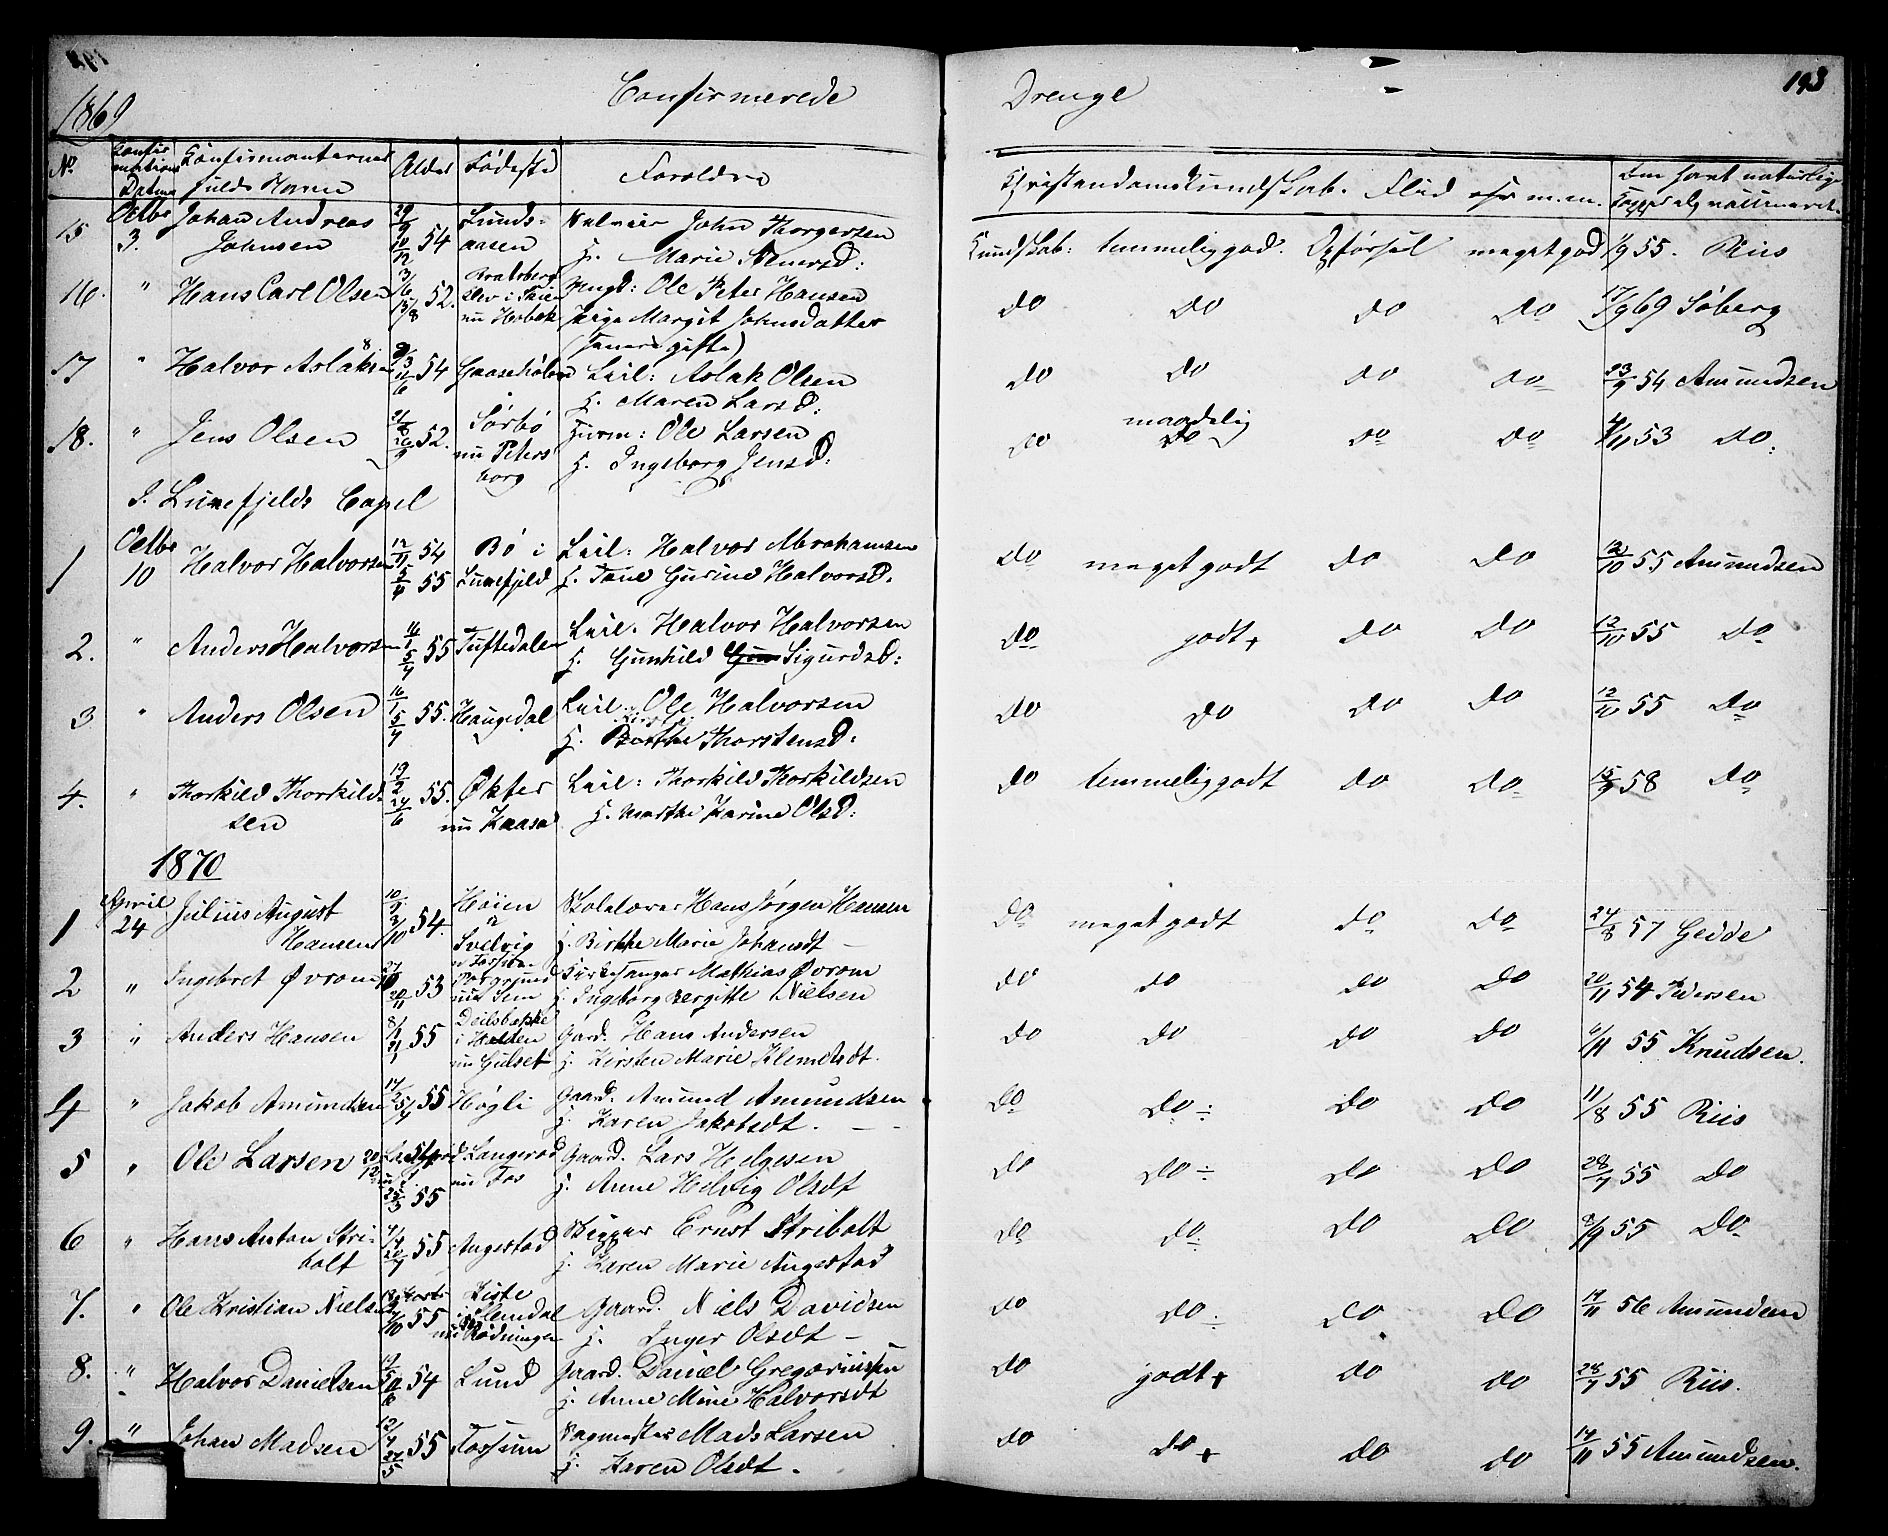 1869 Confirmerede Drenge 193
No. Confirmations Datum Confirmanternes fulde Navn Alder Fødested Forældre Christendomskundskab. Flid osv. m.m. Om havt naturlige Kopper elg vaccineret.
15 Octbr 3. Johan Andreas Johnsen 54 Lunds-aasen John Thorgersen H. Marie Kundskab: temmelig god. Opførsel meget god 1/9 55. Riis
16. " Hans Carl Olsen 3/6 15/8 52. Bratsberg Ole Peter Hansen Pige Margit Johnsdatter (senere gifte) do do do do 17/9 69 Søberg
17 " Halvor Aslaksen 54 Gaaseholen Leil: Aslak Olsen H. Maren Larsd: do do do do 23/9 54 Amundsen
18. " Jens Olsen 52. Sørbø nu Petersborg Huusm: Ole Larsen H. Ingeborg Jensd: do maadelig do do do 4/11 53 do:
I. Luxefjelds Capel
1 Octbr 10 Halvor Halvorsen 12/11 54 5/4 55 Bø i Luxefjeld Leil: Halvor Abrahamsen H. Tone Gurine Halvorsd. do meget godt do do 12/10 55 Amundsen
2. " Anders Halvorsen 16/1 5/4 55 Tuftedalen Leil. Halvor Halvorsen H. Gunhild Sigurdsd: do godt + do do 12/10 55 do
3 " Anders Olsen 16/1 5/4 55. Haugedal Leil. Ole Halvorsen H. Thorstensd: do do do do 12/10 55 do
4. " Thorkild Thorkildsen 19/2 24/6 55. Økter nu Kaasa Leil: Thorkild Thorkildsen H. Marthe Karine Olsd: do temmelig godt do do 15/9 58 do
1870
1 April 24 Julius August Hansen 54. Høien i Svelvig nu Fossum Skolelærer Hans Jørgen Hansen H. Birthe Marie Johansdt — do meget godt do do 24/8 57 Gedde
2 " Ingebret Øvrom 20/11 53 Porsgrund nu Sem Kirkesanger Mathias Øvrom H. Ingeborg Bergitte Nielsen do do do do 20/11 54 Pedersen
3 " Anders Hansen 55 i Holden nu Gulset Gård. Hans Andersen H. Kirsten Marie Klemetsdt. do do do do 6/11 55 Knudsen.
4 " Jakob Amundsen 17/2 5/4 55 Høgli Gaard. Amund Amundsen H. Karen Jakobsdt. do do ÷ do do 11/8 55 Riis
5 " Ole Larsen 55 Langerød nu Fos Gaard. Lars Helgesen H. Anne Helvig Olsdt do do ÷ do do 28/7 55 do
6 " Hans Anton Stribolt 4/4 20/7 55 Augestad Skipper Ernst Stribolt H. Karen Marie Augestad do do ÷ do do 8/9 55 do
7. " Ole Kristian Nielsen 55 Kiste i Slemdal nu Rødningen Gaard. Niels Davidsen H. Inger Olsdt — do do ÷ do do 17/11 56 Amundsen
8. " Halvor Danielsen 54 Lund Gaard. Daniel Gregoriussen H. Anne Mine Halvorsdt do godt + do do 28/7 55 Riis.
9. " Johan Madsen 12/4 27/5 55 Fossum Vagmester Mads Larsen H. Karen Olsdt. do do + do do 17/11 55 Amundsen.